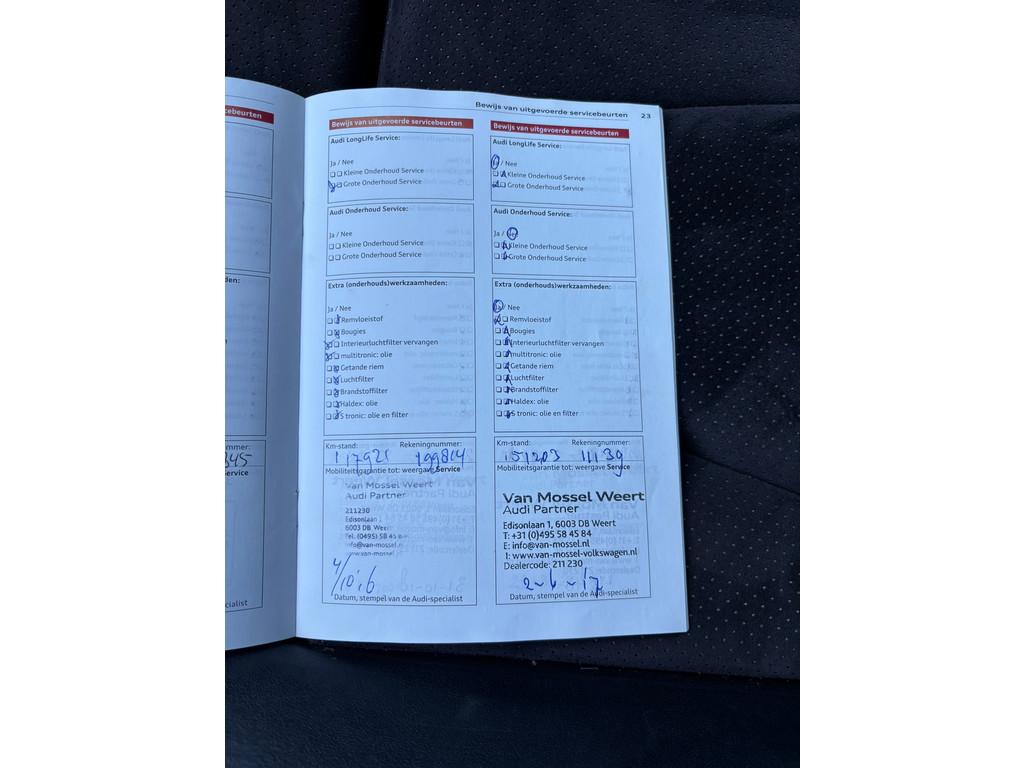 Bewijs van uitgevoerde servicebeurten 23
cebeurten
den:
mmer:
845
ervice
cialist
Bewijs van uitgevoerde servicebeurten
Audi LongLife Service:
Ja / Nee
Kleine Onderhoud Service
Grote Onderhoud Service
Audi Onderhoud Service:
Ja / Nee
Kleine Onderhoud Service
Grote Onderhoud Service
Extra (onderhouds)werkzaamheden:
Ja / Nee
Remvloeistof
Bougies
Interieurluchtfilter vervangen
multitronic: olie
Getande riem
Luchtfilter
Brandstoffilter
Haldex: olie
S tronic: olie en filter
Km-stand: Rekeningnummer:
117921 199814
Mobiliteitsgarantie tot: weergave Service
Van Mossel Weert
Audi Partner
211230
Edisonlaan 1
6003 DB Weert
Tel. (0495) 58 45
info@van-mossel
www.van-mossel
Datum, stempel van de Audi-specialist
Bewijs van uitgevoerde servicebeurten
Audi LongLife Service:
Ja / Nee
Kleine Onderhoud Service
Grote Onderhoud Service
Audi Onderhoud Service:
Ja / Nee
Kleine Onderhoud Service
Grote Onderhoud Service
Extra (onderhouds)werkzaamheden:
Ja / Nee
Remvloeistof
Bougies
Interieurluchtfilter vervangen
multitronic: olie
Getande riem
Luchtfilter
Brandstoffilter
Haldex: olie
S tronic: olie en filter
Km-stand: Rekeningnummer:
151203 11139
Mobiliteitsgarantie tot: weergave Service
Van Mossel Weert
Audi Partner
Edisonlaan 1, 6003 DB Weert
T: +31 (0)495 58 45 84
E: info@van-mossel.nl
I: www.van-mossel-volkswagen.nl
Dealercode: 211 230
2-6-17
Datum, stempel van de Audi-specialist